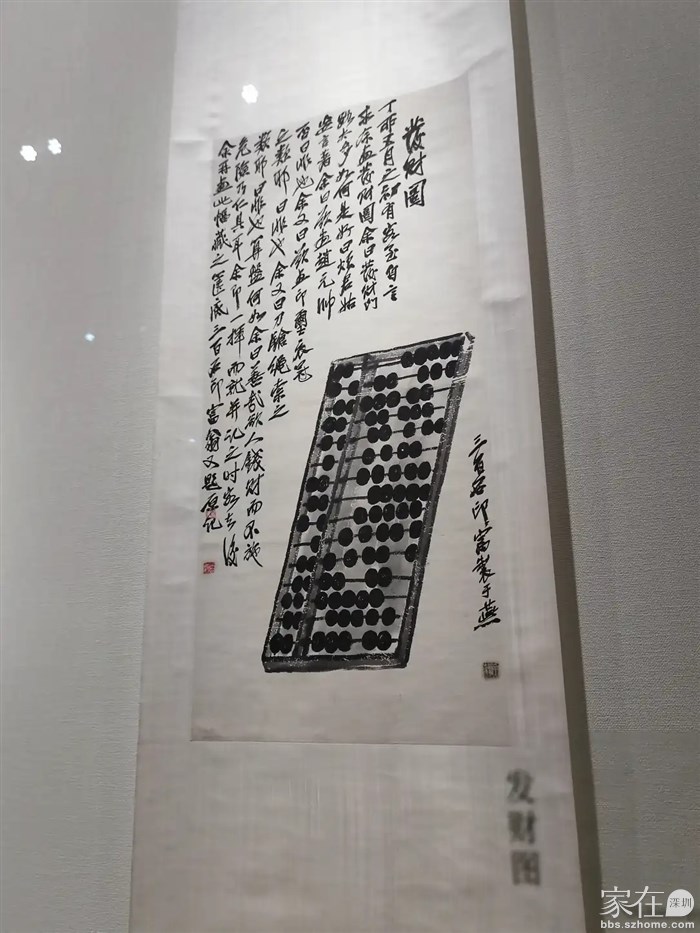 發財圖
丁卯五月之初有客至自言
求余画發財圖余曰發財門
路太多如何是好曰煩君姑
妄言者余曰欲画趙元帥
否曰非也余又曰欲画印璽衣冠
之類耶曰非也余又曰刀鎗繩索之
類耶曰非也算盤何如余曰善哉欲人錢財而不施
危險乃仁具耳余即一揮而就并記之時客去後
余再画此幅藏之篋底三百石印富翁又題原記
三百石印富製于燕
发财图
家在深圳
bbs.szhome.com